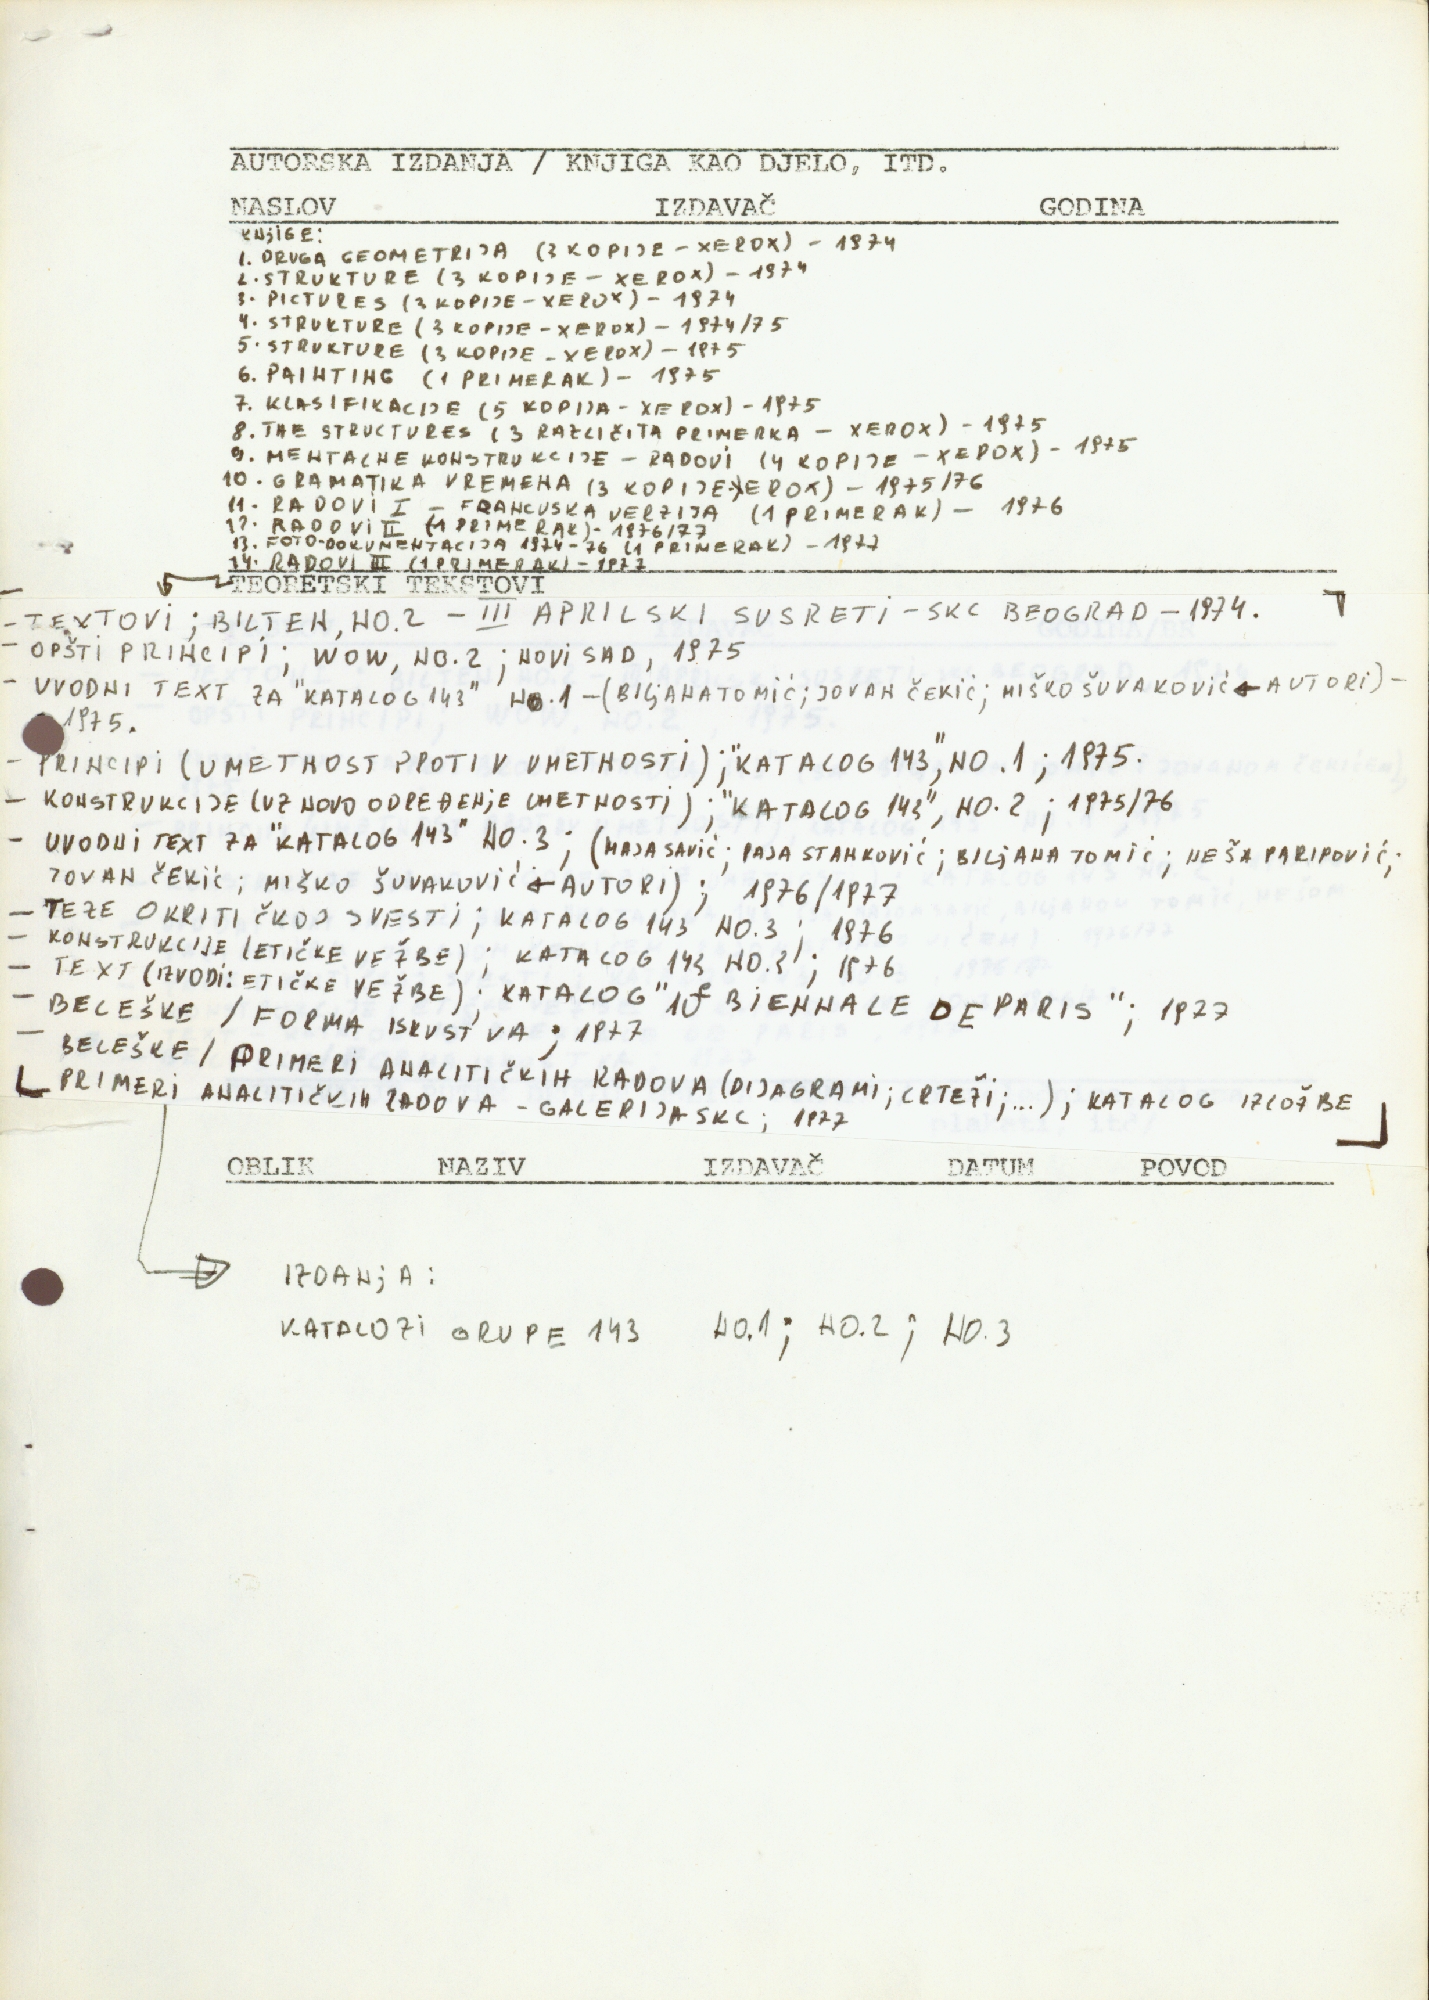 AUTORSKA IZDANJA / KNJIGA KAO DJELO, ITD.
NASLOV IZDAVAČ GODINA
KNJIGE:
1. DRUGA GEOMETRIJA (3 KOPIJE - XEROX) - 1974
2. STRUKTURE (3 KOPIJE - XEROX) - 1974
3. PICTURES (3 KOPIJE - XEROX) - 1974
4. STRUKTURE (3 KOPIJE - XEROX) - 1974/75
5. STRUKTURE (3 KOPIJE - XEROX) - 1975
6. PAINTING (1 PRIMERAK) - 1975
7. KLASIFIKACIJE (5 KOPIJA - XEROX) - 1975
8. THE STRUCTURES (3 RAZLIČITA PRIMERKA - XEROX) - 1975
9. MENTALNE KONSTRUKCIJE - RADOVI (4 KOPIJE - XEROX) - 1975
10. GRAMATIKA VREMENA (3 KOPIJE-XEROX) - 1975/76
11. RADOVI I - FRANCUSKA VERZIJA (1 PRIMERAK) - 1976
12. RADOVI II (1 PRIMERAK) - 1976/77
13. FOTO-DOKUMENTACIJA 1974-76 (1 PRIMERAK) - 1977
14. RADOVI III (1 PRIMERAK) - 1977
TEORETSKI TEKSTOVI
- TEXTOVI ; BILTEN, NO.2 - III APRILSKI SUSRETI - SKC BEOGRAD - 1974.
- OPŠTI PRINCIPI ; WOW, NO.2 ; NOVI SAD, 1975
- UVODNI TEXT ZA "KATALOG 143" NO.1 - (BILJANA TOMIĆ ; JOVAN ČEKIĆ ; MIŠKO ŠUVAKOVIĆ ← AUTORI) -
1975.
- PRINCIPI (UMETNOST PROTIV UMETNOSTI) ; "KATALOG 143", NO.1 ; 1975.
- KONSTRUKCIJE (UZ NOVO ODREĐENJE UMETNOSTI) ; "KATALOG 143", NO.2 ; 1975/76
- UVODNI TEXT ZA "KATALOG 143" NO.3 ; (MAJA SAVIĆ ; PAJA STANKOVIĆ ; BILJANA TOMIĆ ; NEŠA PARIPOVIĆ ;
JOVAN ČEKIĆ ; MIŠKO ŠUVAKOVIĆ ← AUTORI) ; 1976/1977
- TEZE O KRITIČKOJ SVESTI ; KATALOG 143 NO.3 ; 1976
- KONSTRUKCIJE (ETIČKE VEŽBE) ; KATALOG 143 NO.3 ; 1976
- TEXT (IZVODI: ETIČKE VEŽBE) ; KATALOG "10e BIENNALE DE PARIS" ; 1977
- BELEŠKE / FORMA ISKUSTVA ; 1977
- BELEŠKE / PRIMERI ANALITIČKIH RADOVA (DIJAGRAMI ; CRTEŽI ; ...) ; KATALOG IZLOŽBE
PRIMERI ANALITIČKIH RADOVA - GALERIJA SKC ; 1977
OBLIK NAZIV IZDAVAČ DATUM POVOD
IZDANJA :
KATALOZI GRUPE 143 NO.1 ; NO.2 ; NO.3